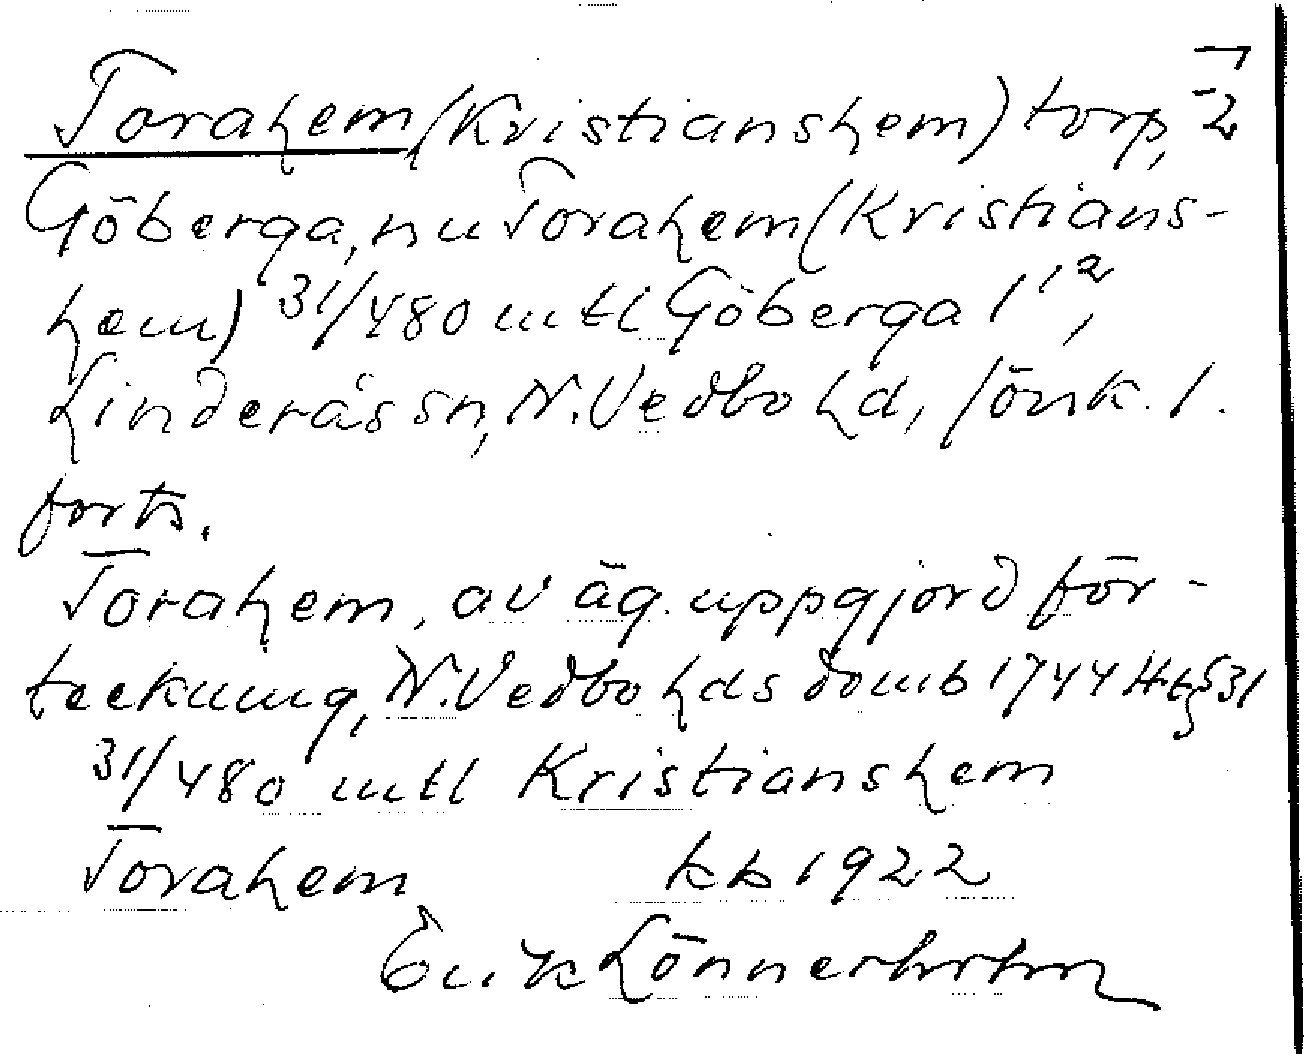 Torahem (Kristianshem) torp, 2
Göberga, nu Torahem (Kristians-
hem) 31/480 mtl Göberga 1 1 2,
Linderås sn, N. Vedbo hd, Jönk. l.
forts.
Torahem, av äg. uppgjord för-
teckning, N. Vedbo hds domb 1744 Ht § 31
31/480 mtl Kristianshem
Torahem kb 1922
Erik Lönnerholm